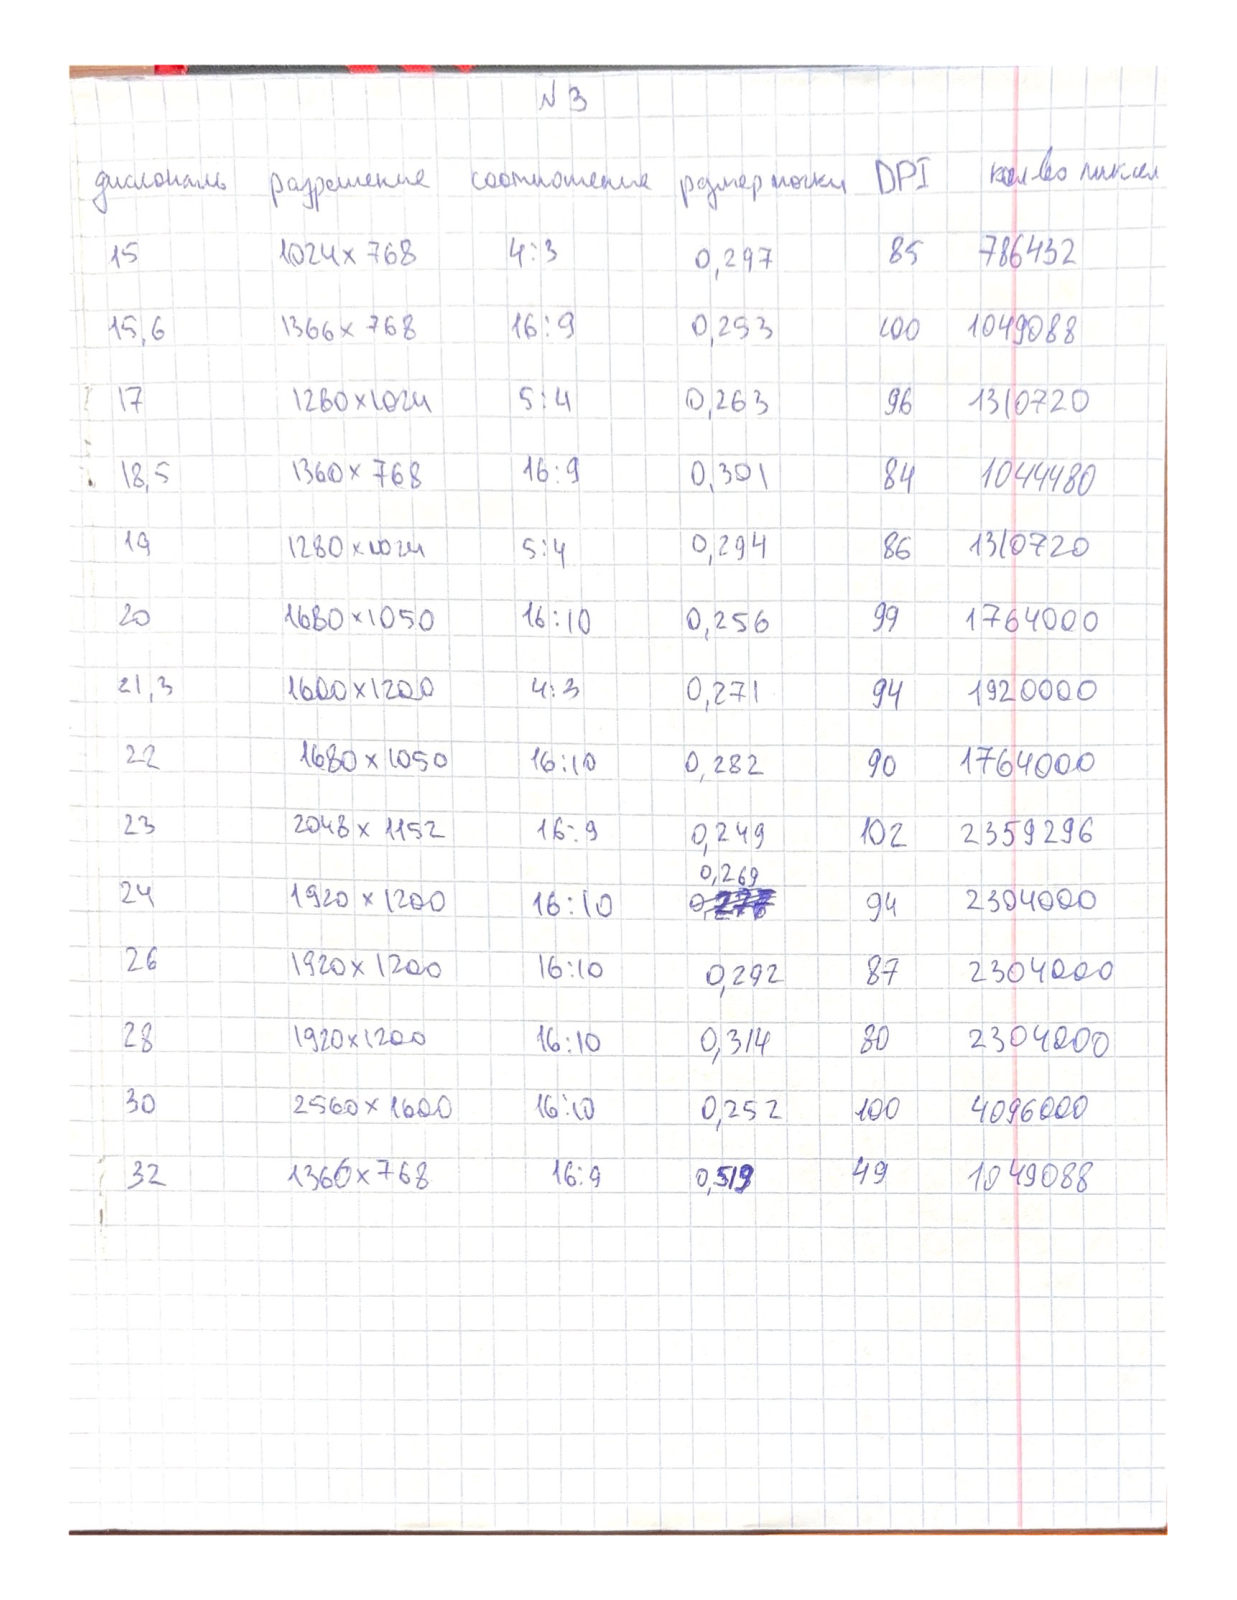 N 3
диагональ разрешение соотношение размер точки DPI кол-во пиксел
15 1024x768 4:3 0,297 85 786432
15,6 1366x768 16:9 0,253 100 1049088
17 1280x1024 5:4 0,263 96 1310720
18,5 1360x768 16:9 0,301 84 1044480
19 1280x1024 5:4 0,294 86 1310720
20 1680x1050 16:10 0,256 99 1764000
21,3 1600x1200 4:3 0,271 94 1920000
22 1680x1050 16:10 0,282 90 1764000
23 2048x1152 16:9 0,249 102 2359296
0,269
24 1920x1200 16:10 94 2304000
26 1920x1200 16:10 0,292 87 2304000
28 1920x1200 16:10 0,314 80 2304000
30 2560x1600 16:10 0,252 100 4096000
32 1366x768 16:9 0,519 49 1049088